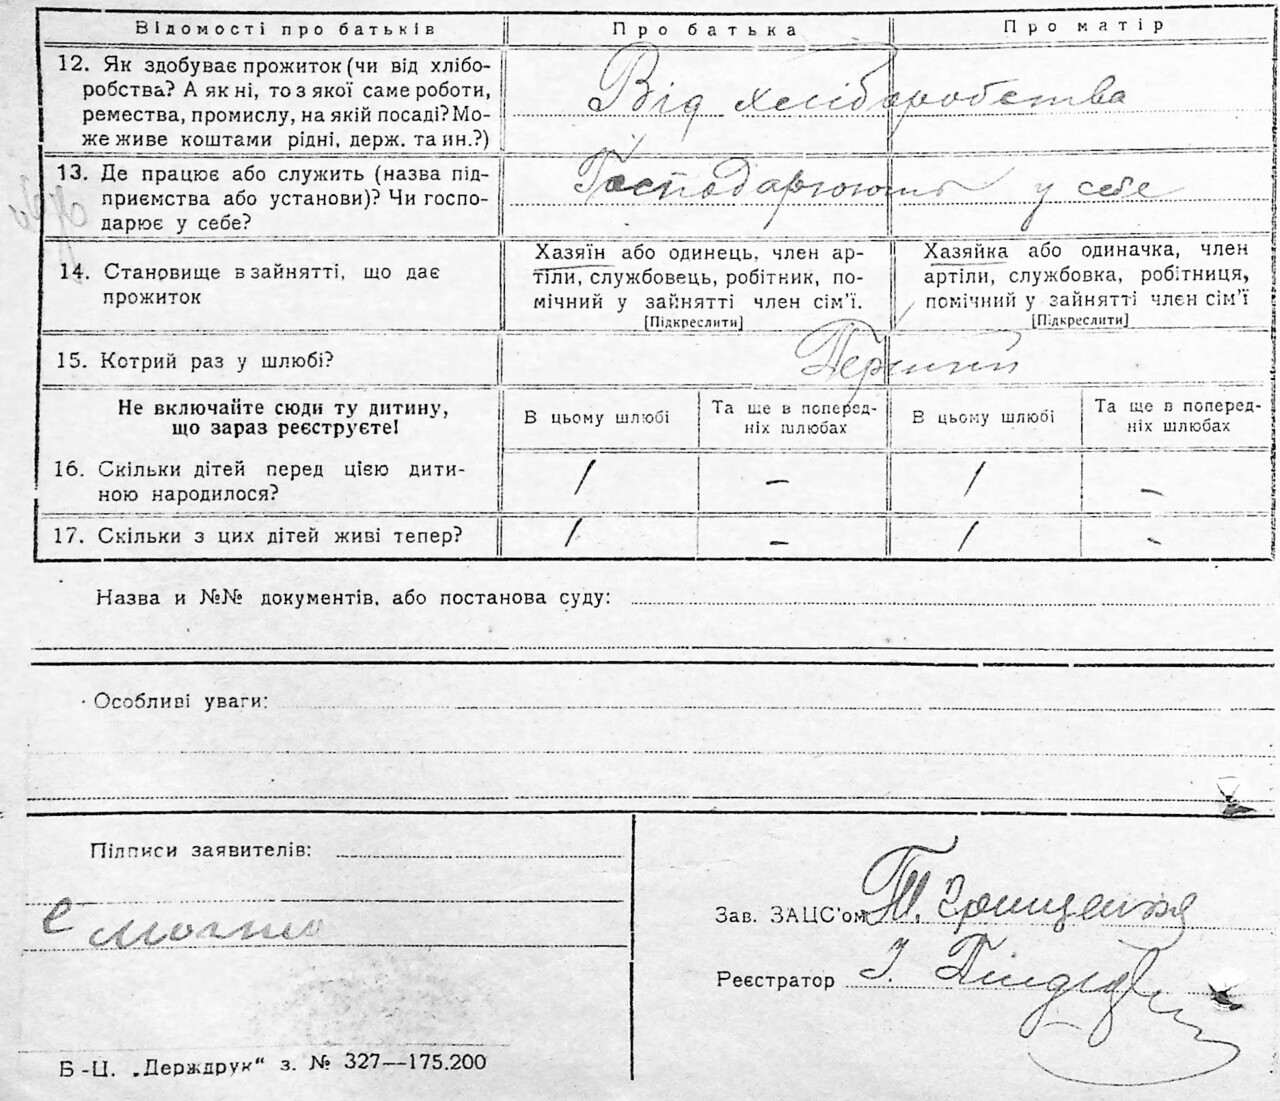 Відомості про батьків Про батька Про матір
12. Як здобуває прожиток (чи від хлібо-
робства? А як ні, то з якої саме роботи,
ремества, промислу, на якій посаді? Мо-
же живе коштами рідні, держ. та ин.?)
Від хліборобства
13. Де працює або служить (назва під-
приємства або установи)? Чи госпо-
дарює у себе?
Господарюють у себе
14. Становище в зайнятті, що дає
прожиток
Хазяїн або одинець, член ар-
тіли, службовець, робітник, по-
мічний у зайнятті член сім'ї.
[Підкреслити]
Хазяйка або одиначка, член
артіли, службовка, робітниця,
помічний у зайнятті член сім'ї
[Підкреслити]
15. Котрий раз у шлюбі?
Перший
Не включайте сюди ту дитину,
що зараз реєструєте!
В цьому шлюбі
Та ще в поперед-
ніх шлюбах
В цьому шлюбі
Та ще в поперед-
ніх шлюбах
16. Скільки дітей перед цією дити-
ною народилося?
1 - 1 -
17. Скільки з цих дітей живі тепер? 1 - 1 -
Назва и №№ документів, або постанова суду:
Особливі уваги:
Підписи заявителів:
Зав. ЗАЦС'ом Т. Грищенко
Реєстратор І.
Б-Ц. „Держдрук" з. № 327—175.200